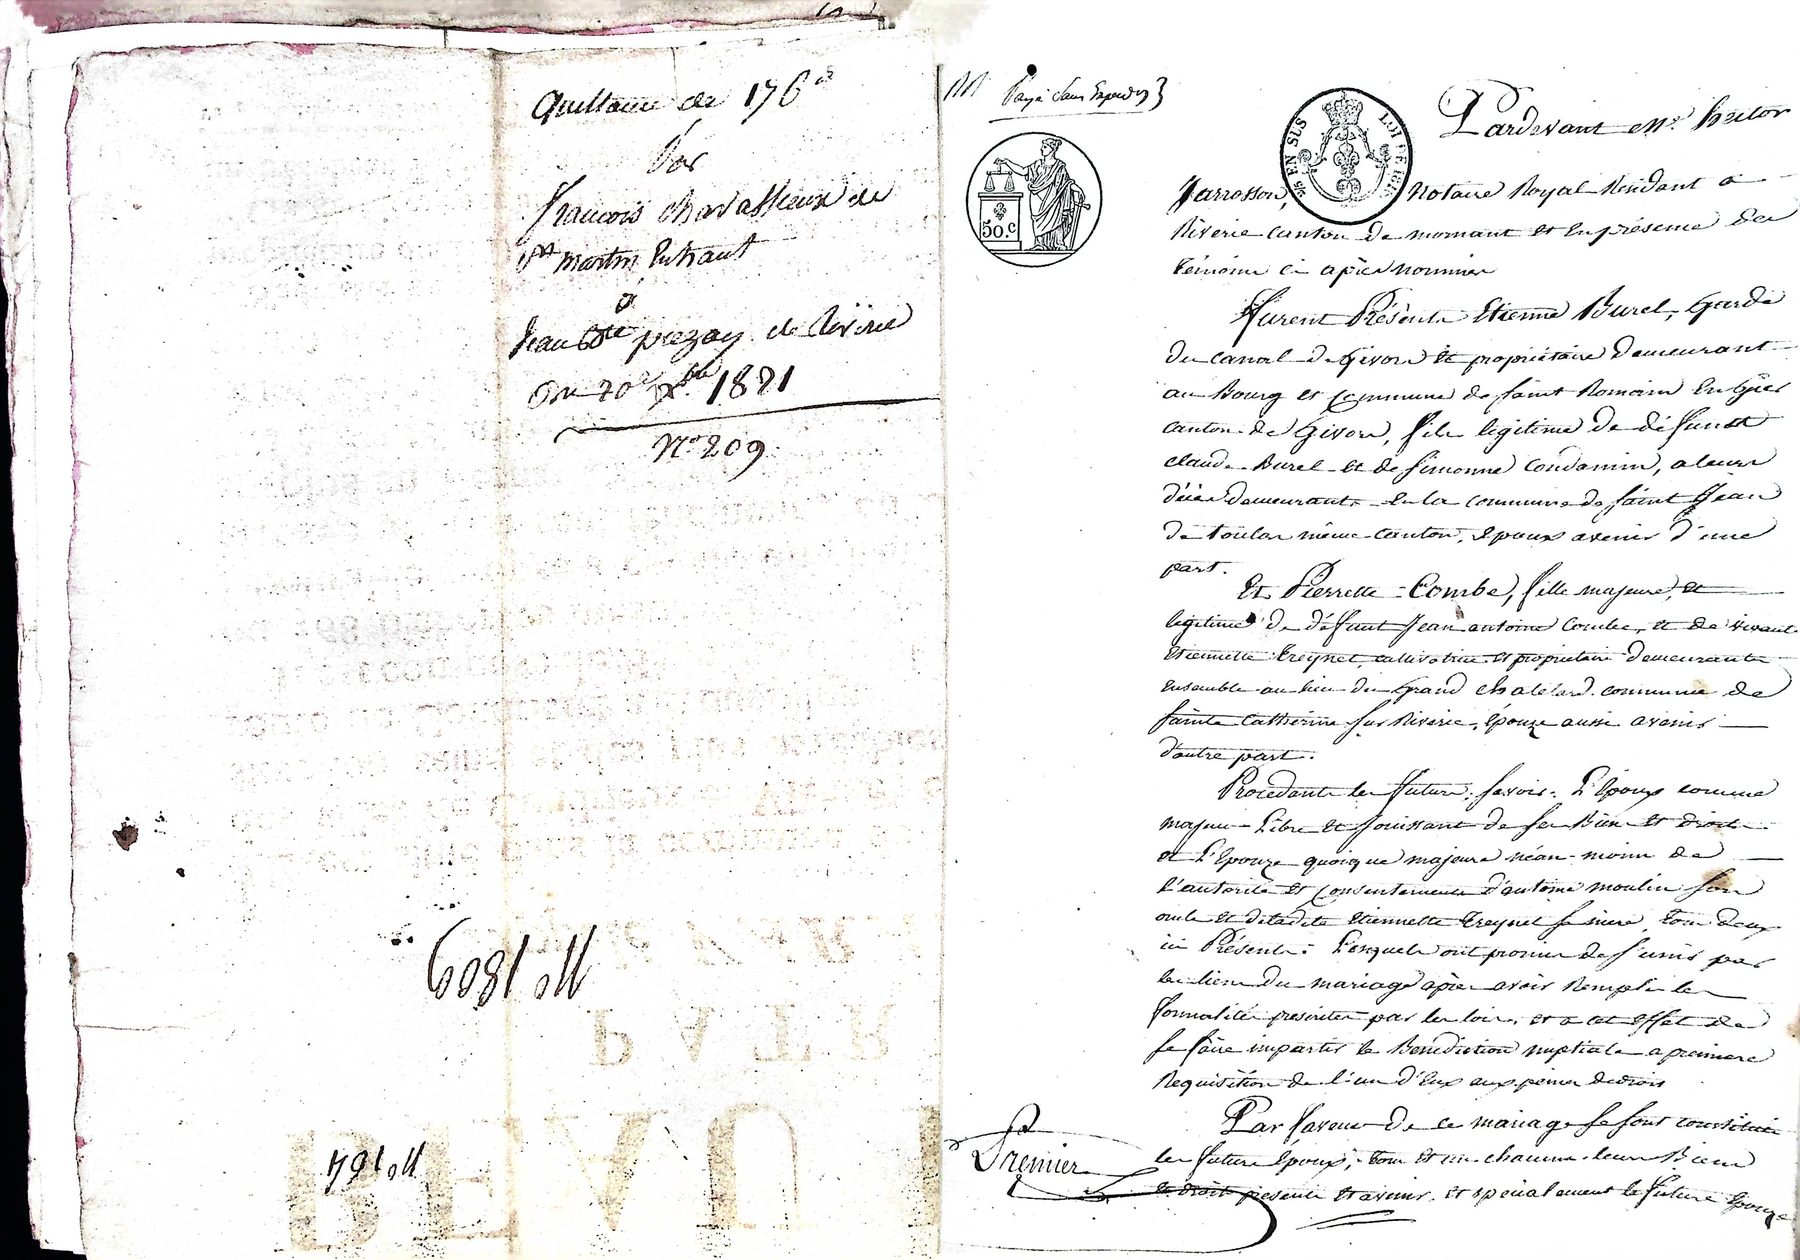 Quittance de 176
Par
francois chavassieux de
St martin Enhaut
à
Jean Bte prezay de Riverie
Du 20e Xbre 1821
No 209
No 1809
No 164
Payé Sans Expedon
50.c
EN SUS LOI DE 1816
Pardevant Me. hector
Jarrosson, Notaire Royal Residant a
Riverie canton de mornant et En présence des
témoins ci après nommés
Furent Présents Etienne Burel, Garde
du canal de Givors et propriétaire demeurant
au Bourg et Commune de Saint Romain En Giers
canton de Givors, fils légitime de défunts
claude Burel et de Simonne Condamin, a leurs
décès demeurants En la commune de Saint Jean
de toulas même canton, Epoux avenir d'une
part.
Et Pierrette Combe, fille majeure, et
légitime de défunt Jean antoine Combe, et de vivante
Etiennette Treynet, cultivatrice et propriétaire demeurants
Ensemble au lieu du Grand Chatelard commune de
Sainte Catherine sur Riverie, Epouze aussi avenir
d'autre part.
Procédants les futurs, savoir: L'Epoux comme
majeur Libre et Jouissant de ses Biens et droits
et L'Epouze quoique majeure néan-moins de
L'autorité et Consentement d'antoine moulin son
oncle et de ladite Etiennette Treynet sa mere, tous deux
ici Présents: Lesquels ont promis de s'unir par
les liens du mariage après avoir Rempli les
formalités prescrites par les loix, et a cet Effet de
se faire impartir la Bénédiction nuptiale a premiere
Requisition de l'un d'Eux aux peines de droit
Par faveur de ce mariage se sont constitués
les futurs Epoux, tous et un chacuns leurs Biens
et droits présents et avenir, et spécialement la future Epouze
Premier